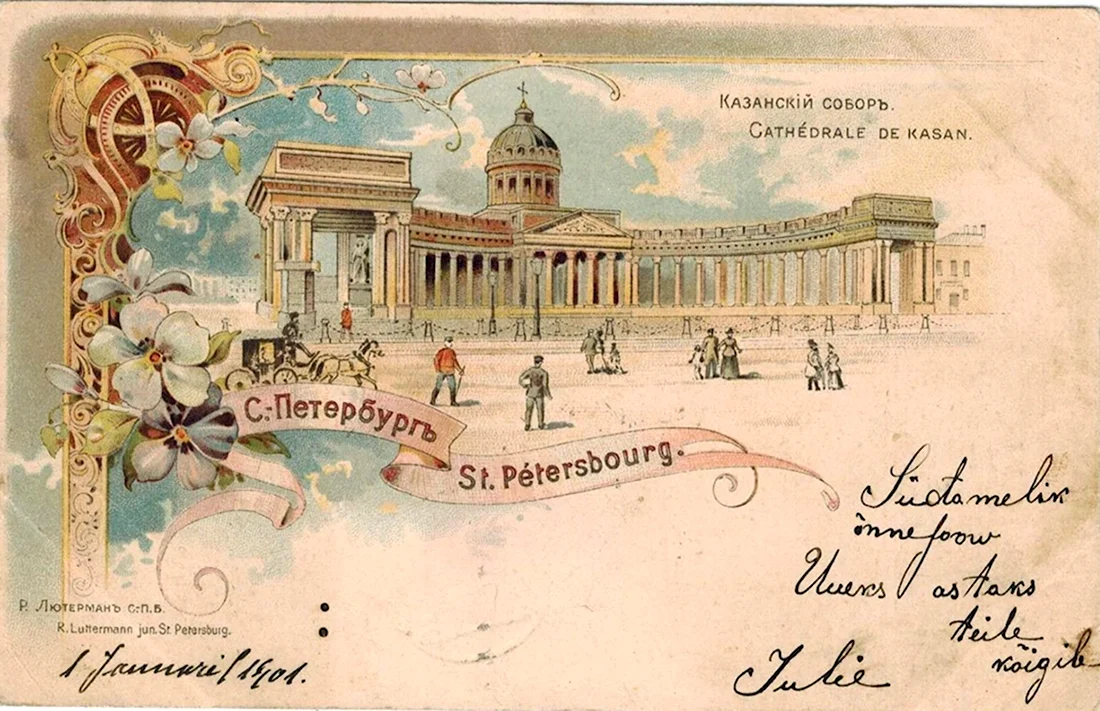 КАЗАНСКІЙ СОБОРЪ.
CATHÉDRALE DE KASAN.
С.-Петербургъ
St. Pétersbourg.
Südamelik
õnnesoow
Uueks aastaks
teile
kõigile
Julie
Р. ЛЮТЕРМАНЪ С.-П.Б.
R. Luttermann jun. St. Petersburg.
1 Januaril 1901.